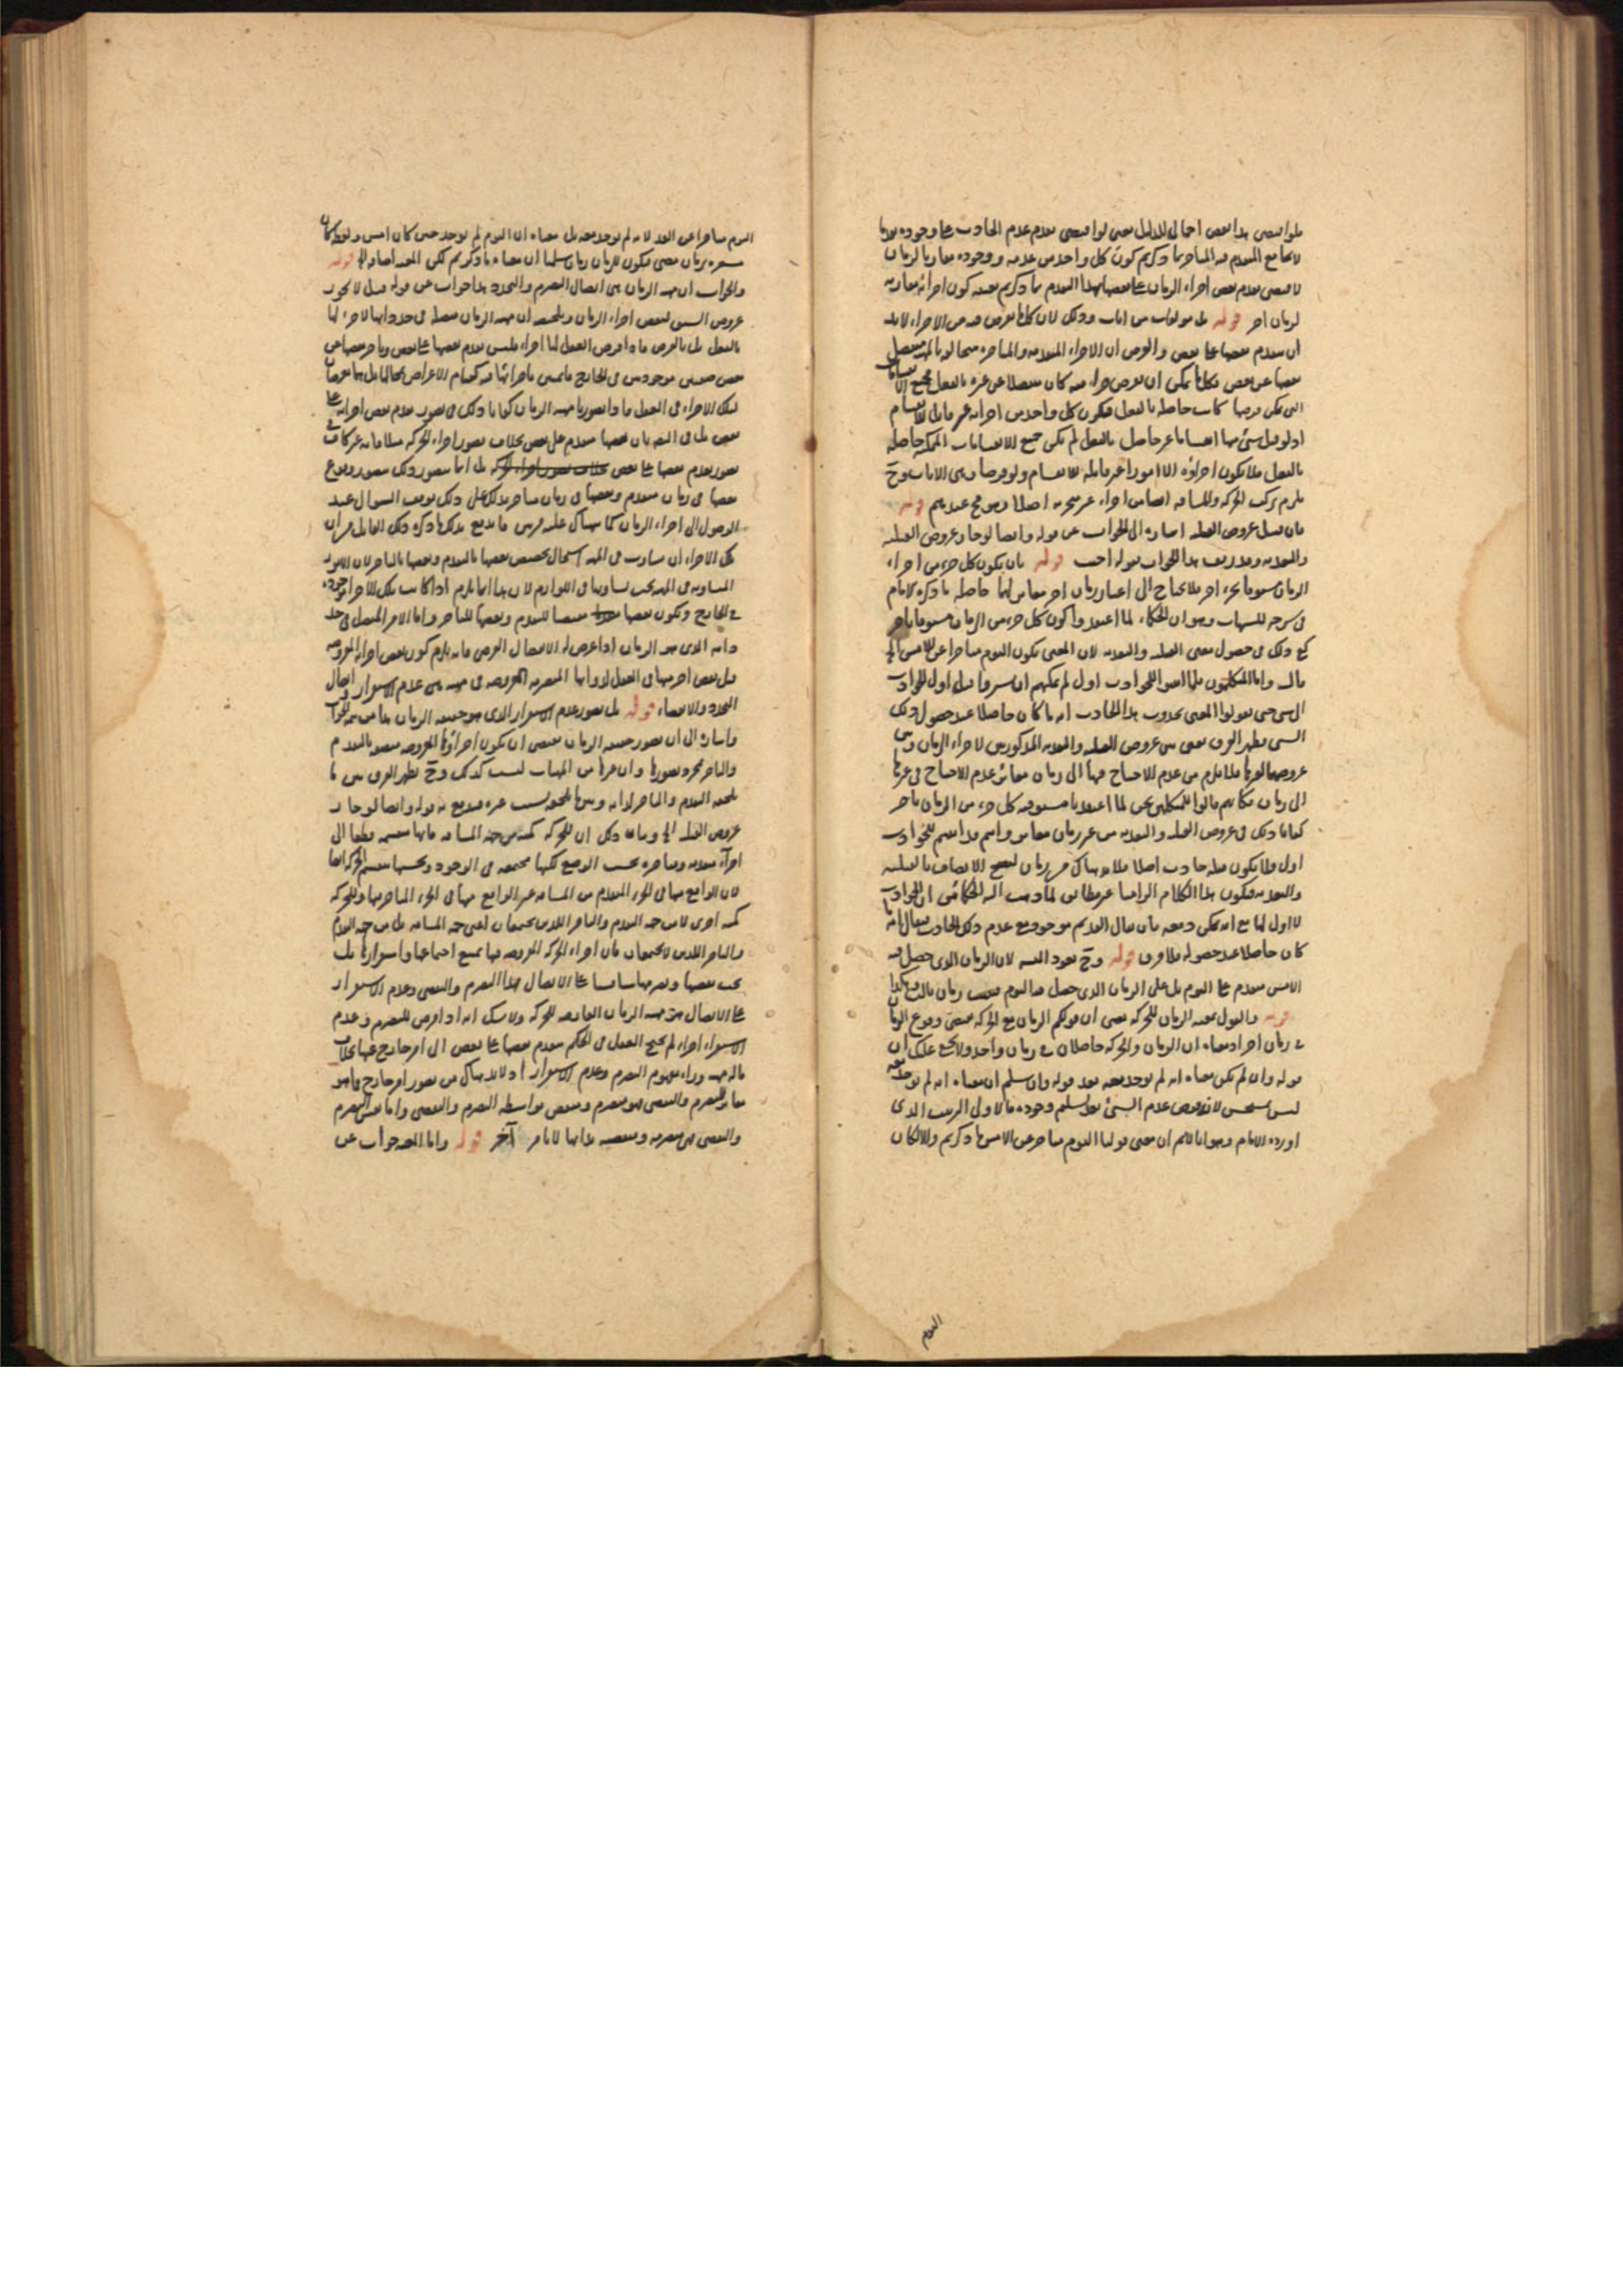 فلو اقتضى هذا نقض اجمالى للدليل يعنى لو اقتضى تقدم عدم الحادث على وجوده
لا يجامع المتقدم فيه المتاخر بما ذكرتم كون كل واحد من عدمه ووجوده مقارنا لزمان
لاقتضى تقدم بعض اجزاء الزمان على بعضها بهذا التقدم بما ذكرتم بعينه كون اجزائه مقارنه
لزمان اخر قوله بل هو مولف من انات وذلك لان كل ما يعرض فيه من الاجزاء لابد
ان يتقدم بعضها على بعض والفرض ان الاجزاء المتقدمه والمتاخره متخالفه بالمهيه منفصل
بعضها عن بعض فكل ما يمكن ان يفرض جزاء منه كان منفصلا عن غيره بالفعل فجميع الانقسامات
التى يمكن فرضها كانت حاصله بالفعل فيكون كل واحد من اجزائه غير قابل للانقسام
اذ لو قبل شئ منها انقساما غير حاصل بالفعل لم يكن جميع الانقسامات الممكنه حاصله
بالفعل فلا يكون اجزاؤه الا امورا غير قابله للانقسام ولو فرضا وهى الانات وح
يلزم تركب الحركه والمسافه ايضا من اجزاء غير متجزيه اصلا وهو مح عندهم قوله
فان قيل عروض القبليه اشاره الى الجواب عن قوله وايضا لو جاز عروض القبليه
والبعديه وقد زيف هذا الجواب بقوله اجيب قوله بان يكون كل جزء من اجزاء
الزمان مسبوقا بجزء اخر فلا يحتاج الى اعتبار زمان اخر مغاير لهما حاصله ما ذكره الامام
فى شرحه للشبهات وهو ان الحكماء لما اعتقدوا كون كل جزء من الزمان مسبوقا باخر
كفى ذلك فى حصول معنى القبليه والبعديه لان المعنى بكون اليوم متاخرا عن الامس الخ
قال واما المتكلمون فلما اثبتوا للحوادث اول لم يمكنهم ان يشيروا قبل اول الحوادث
الى شى حتى يقولوا المعنى بحدوث هذا الحادث انه ما كان حاصلا عند حصول ذلك
الشى فظهر الفرق يعنى بين عروض القبليه والبعديه المذكورين لاجزاء الزمان وبين
عروضهما لغيرها فلا يلزم من عدم الاحتياج فيها الى زمان مغاير عدم الاحتياج فى غيرها
الى زمان فكانهم قالوا للمتكلمين نحن لما اعتقدنا مسبوقيه كل جزء من الزمان باخر
كفانا ذلك فى عروض القبليه والبعديه من غير زمان مغاير وانتم قد اثبتم للحوادث
اول فلا يكون قبله حادث اصلا فلابد هناك من زمان ليصح الاتصاف بالقبليه
والبعديه فيكون هذا الكلام الزاميا غير مطابق لما ذهب اليه الحكماء من ان الحوادث
لا اول لها مع انه يمكن دفعه بان يقال القديم موجود مع عدم ذلك الحادث فيقال انه ما
كان حاصلا عند حصوله فلا فرق قوله وح يعود القسمه لان الزمان الذى حصل فيه
الامس متقدم على اليوم بل على الزمان الذى حصل فيه اليوم فيثبت زمان ثالث وهكذا
قوله والقول بمعيه الزمان للحركه يعنى ان قولكم الزمان مع الحركه يقتضى وقوع الزمان
فى زمان اخر اذ معناه ان الزمان والحركه حاصلان فى زمان واحد ولا يخفى عليك ان
قوله وان لم يكن معناه انه لم يوجد معه بعد قوله وان سلم ان معناه انه لم يوجد معه
ليس بمستحسن لانه يفرض عدم الشئ بعد تسليم وجوده فالاولى الترتيب الذى
اورده الامام وهو انا لانم ان معنى قولنا اليوم متاخر عن الامس ما ذكرتم والا لكان
اليوم
اليوم متاخرا عن الغد لانه لم يوجد معه بل معناه ان اليوم لم يوجد حين كان امس ولفظ كان
مشعره بزمان مضى فيكون للزمان زمان سلمنا ان معناه ما ذكرتم لكن المعيه اضافه الخ قوله
والجواب ان مهيه الزمان هى اتصال التصرم والتجدد هذا جواب عن قوله قيل لا يجوز
عروض السبق لبعض اجزاء الزمان وتلخيصه ان مهيه الزمان متصله فى حد ذاتها لا جزء لها
بالفعل بل بالفرض فاذا فرض العقل لها اجزاء فليس تقدم بعضها على بعض وتاخر بعضها عن
بعض صفتين موجودتين فى الخارج قائمتين باجزائها فيه كقيام الاعراض بمحالها بل هما يعرضان
لتلك الاجزاء فى العقل فاذا تصورنا مهيه الزمان كفانا ذلك فى تصور تقدم بعض اجزائه على
بعض بل فى التصديق بان بعضها متقدم على بعض بخلاف تصور اجزاء الحركه مثلا فانه غير كاف فى
تصور تقدم بعضها على بعض بخلاف تصور اجزاء الحركه بل انما يتصور ذلك بتصور وقوع
بعضها فى زمان متقدم وبعضها فى زمان متاخر فلذلك على ذلك يوقف السوال عند
الوصول الى اجزاء الزمان كما هناك عليه فيما مر فاندفع بذلك ما ذكره ذلك القائل من ان
تلك الاجزاء ان تساوت فى المهيه استحال تخصيص بعضها بالتقدم وبعضها بالتاخر لان الامور
المتساويه فى المهيه يجب تساويها فى اللوازم لان هذا انما يلزم اذا كانت تلك الاجزاء موجوده
فى الخارج ويكون بعضها مقتضيا للتقدم وبعضها للتاخر واما الامر المتصل فى حد
ذاته الذى هو الزمان اذا عرض له الانفصال الفرضى فانه يلزم كون بعض اجزائه المفروضه
قبل بعض اخر منها فى العقل لذواتها المتصرمه المفروضه فى مهيه هى عدم الاستقرار واتصال
التجدد والانقضاء قوله بل تصور عدم الاستقرار الذى هو حقيقه الزمان هذا من تتمه الجواب
واشاره الى ان تصور حقيقه الزمان يقتضى ان يكون اجزاؤها المفروضه متصفه بالتقدم
والتاخر لمجرد تصورها وان غيرها من المهيات ليست كذلك وح يظهر الفرق بين ما
يلحقه التقدم والتاخر لذاته وبين ما يلحقه بسبب غيره فيندفع به قوله وايضا لو جاز
عروض القبليه الخ وبيان ذلك ان للحركه كميه من جهه المسافه فانها منقسمه قطعا الى
اجزاء متقدمه ومتاخره بحسب الوضع لكنها مجتمعه فى الوجود وبحسبها تنقسم الحركه ايضا
لان الواقع منها فى الجزء المتقدم من المسافه غير الواقع منها فى الجزء المتاخر منها وللحركه
كميه اخرى لا من جهه التقدم والتاخر اللذين يجتمعان اعنى جهه المسافه بل من جهه التقدم
والتاخر اللذين لا يجتمعان فان اجزاء الحركه المفروضه فيها يمتنع اجتماعها واستقرارها بل
يجب تقضيها وتصرمها شيئا فشيئا على الاتصال فهذا التصرم والتقضى وعدم الاستقرار
على الاتصال هو مهيه الزمان العارضه للحركه ولا شك انه اذا فرض للتصرم وعدم
الاستقرار اجزاء لم يحتج العقل فى الحكم بتقدم بعضها على بعض الى امر خارج عنها بخلاف
ماله مهيه وراء مفهوم التصرم وعدم الاستقرار اذ لابد هناك من تصور امر خارج وهو
مقارنه التصرم والتقضى فهو متصرم ومتقض بواسطه التصرم والتقضى واما نفس التصرم
والتقضى فهى متصرمه ومتقضيه بذاتها لا بامر آخر قوله واما المعيه جواب عن